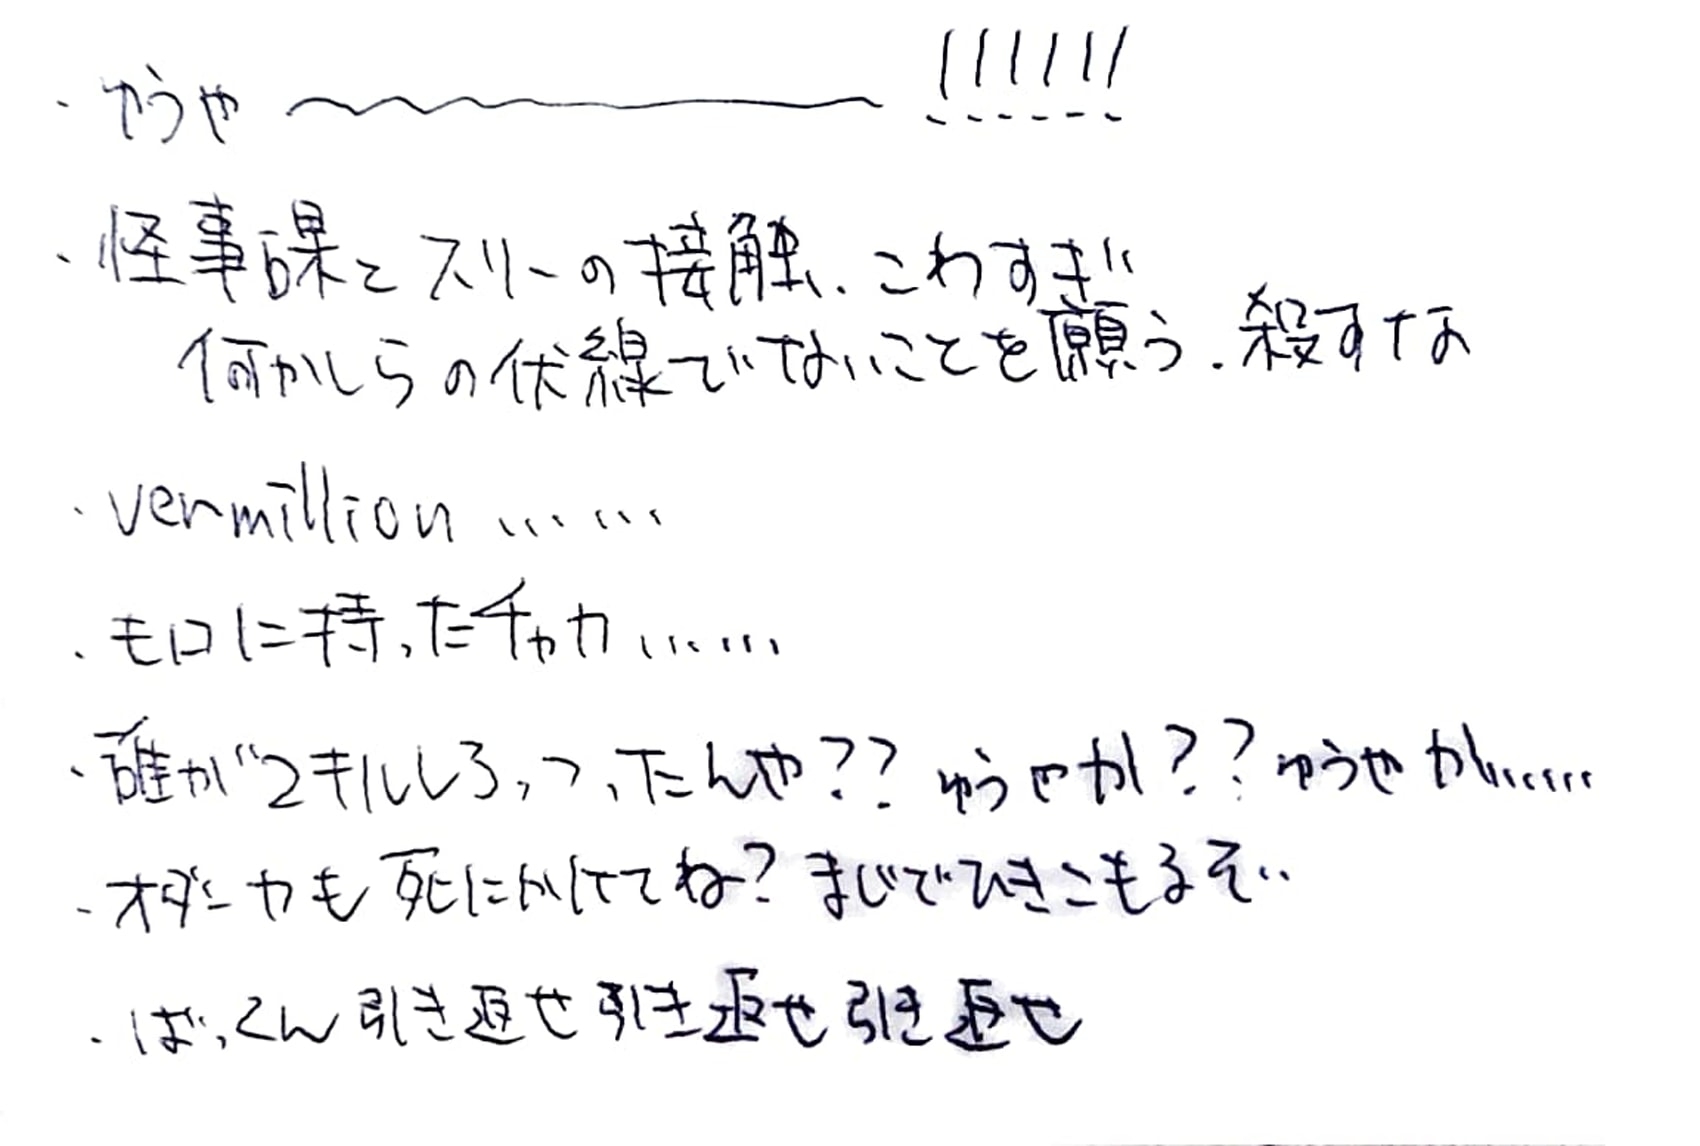 ・ゆうや〜〜〜〜〜!!!!!!
・怪事課とスリーの接触、こわすぎ
何かしらの伏線でないことを願う.殺すな
・vermillion ……
・モロに持ったチャカ……
・誰が2キルしろっつったんや?? ゅうやか?? ゆうやか……
・オダーカも死にかけてね? まじでひきこもるぞ..
・ばっくん引き返せ引き返せ引き返せ